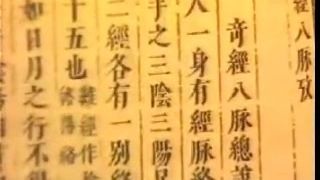 經八脉攷
奇經八脉總說
人一身有經脉絡
手之三陰三陽足
二經各有一別絡
十五也難經作
如日月之行不